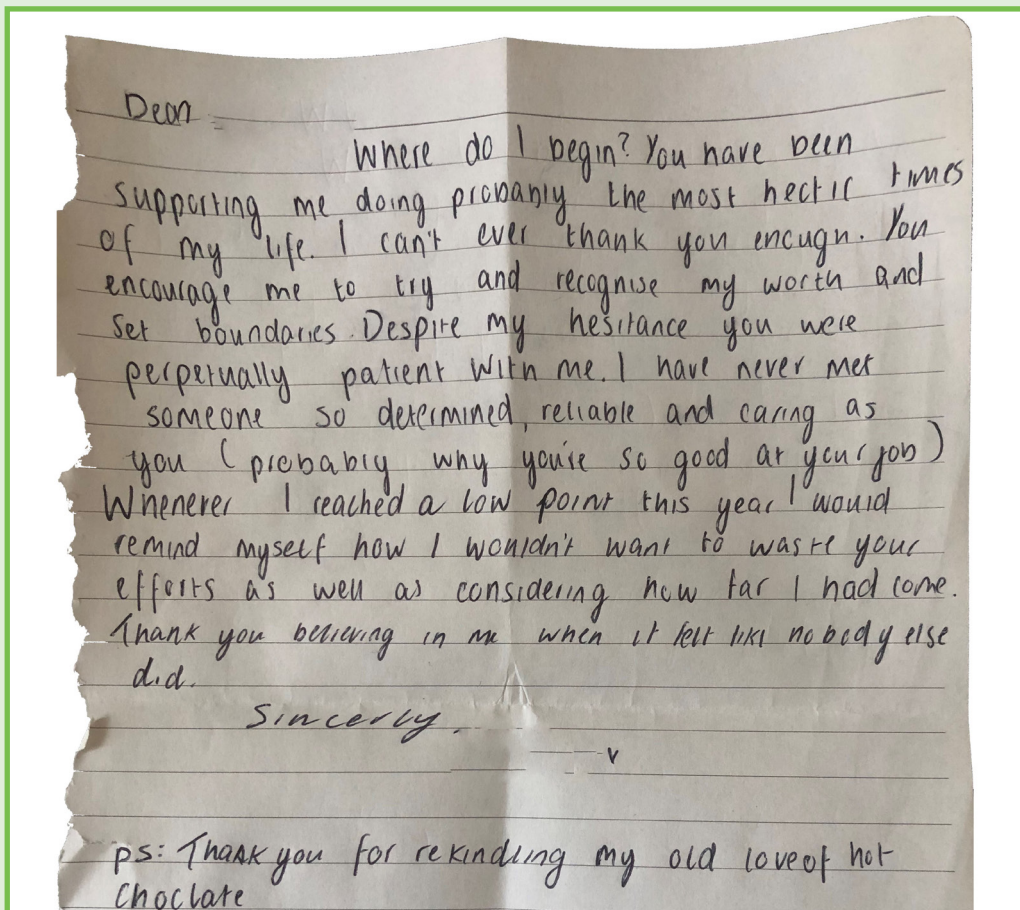 Dear
Where do I begin? You have been
supporting me doing probably the most hectic times
of my life. I can't ever thank you enough. You
encourage me to try and recognise my worth and
set boundaries. Despite my hesitance you were
perpetually patient with me. I have never met
someone so determined, reliable and caring as
you (probably why you're so good at your job)
Whenever I reached a low point this year I would
remind myself how I wouldn't want to waste your
efforts as well as considering how far I had come.
Thank you believing in me when it felt like nobody else
did.
Sincerly,
ps: Thank you for rekindling my old love of hot
Choclate